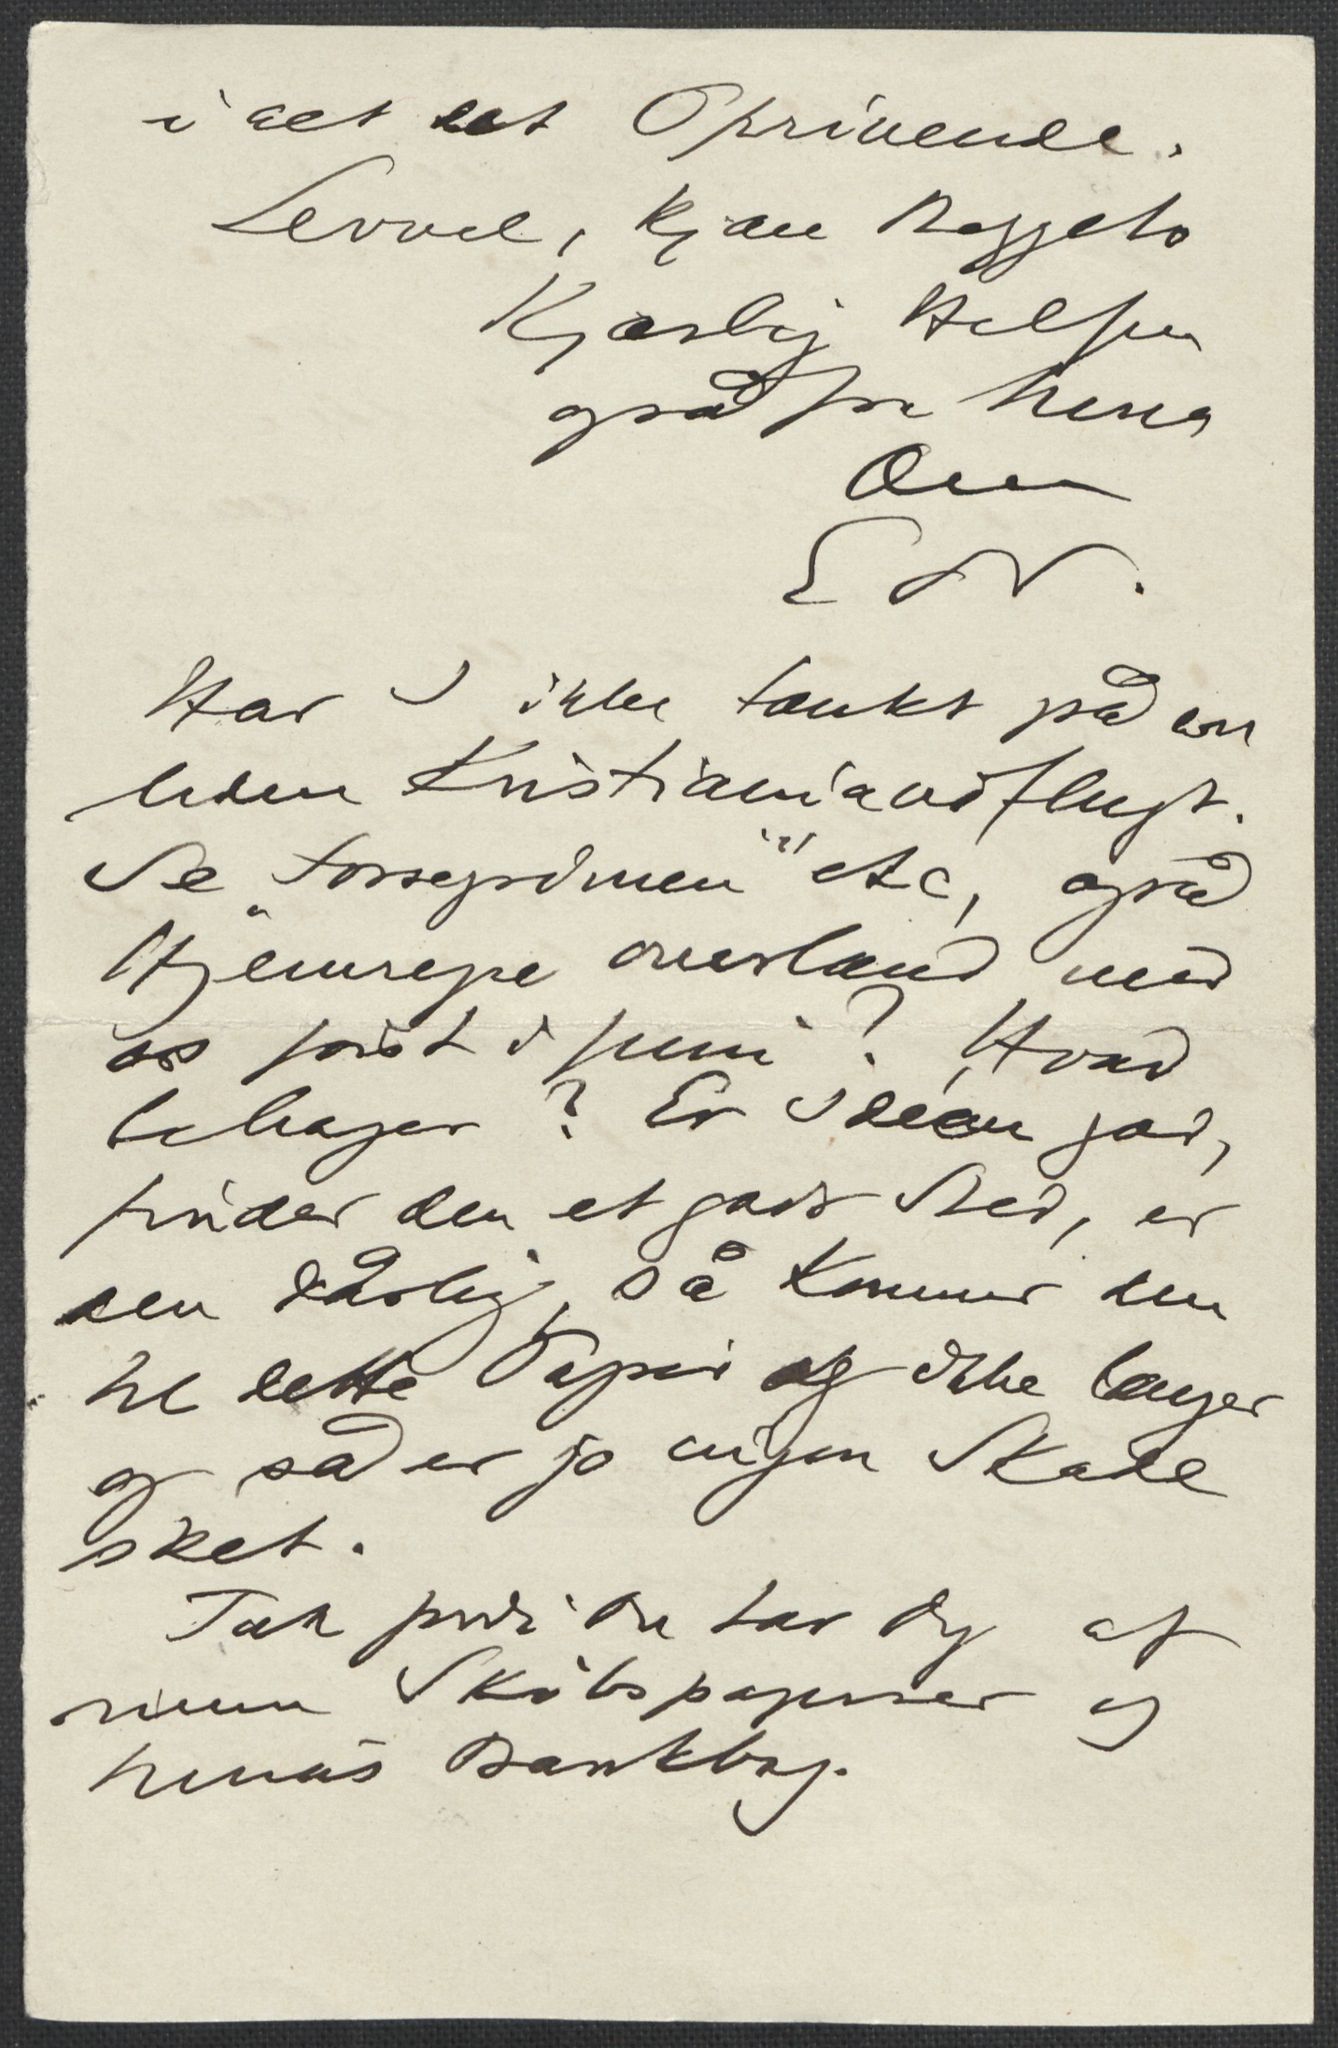 i alt det Oprivende.
Levvel, kjære Begge to
Kjærlig Hilsen
også fra Nina
Din
E G.
Har I ikke tænkt på en
liden Kristianiaudflugt.
Se "Fossegrimen" etc, også
Hjemrejse overland med
os først i Juni? Hvad
behager? Er Idéen god,
finder den et godt Sted, er
den dårlig, så kommer den
til dette Papir og ikke længer
og så er jo ingen Skade
sket.
Tak fordi Du tar Dig af
mine Skibspapirer og
Ninas Bankbog.